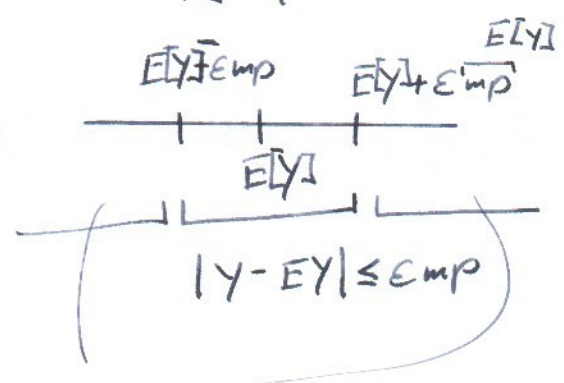 E[Y]
E[Y]-εmp E[Y]+εmp
E[Y]
|Y-EY| ≤ εmp